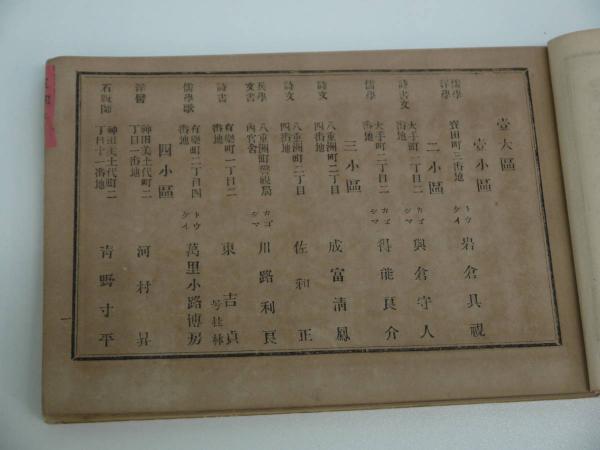 壹大區
壹小區
儒學
洋學
寶田町三番地
トウ
ケイ
岩倉具視
二小區
詩書文
大手町一丁目一
番地
カゴ
シマ
與倉守人
儒學
大手町二丁目二
番地
カゴ
シマ
得能良介
三小區
詩文
八重洲町二丁目
四番地
成富清風
詩文
八重洲町二丁目
四番地
佐和正
兵學
文書
八重洲町警視局
內官舍
カゴ
シマ
川路利良
詩書
有樂町一丁目二
番地
東吉貞
号桂林
儒學歌
有樂町二丁目四
番地
トウ
ケイ
萬里小路博房
四小區
洋醫
神田美土代町二
丁目一番地
河村昇
石版師
神田美土代町二
丁目十一番地
青野寸平
一